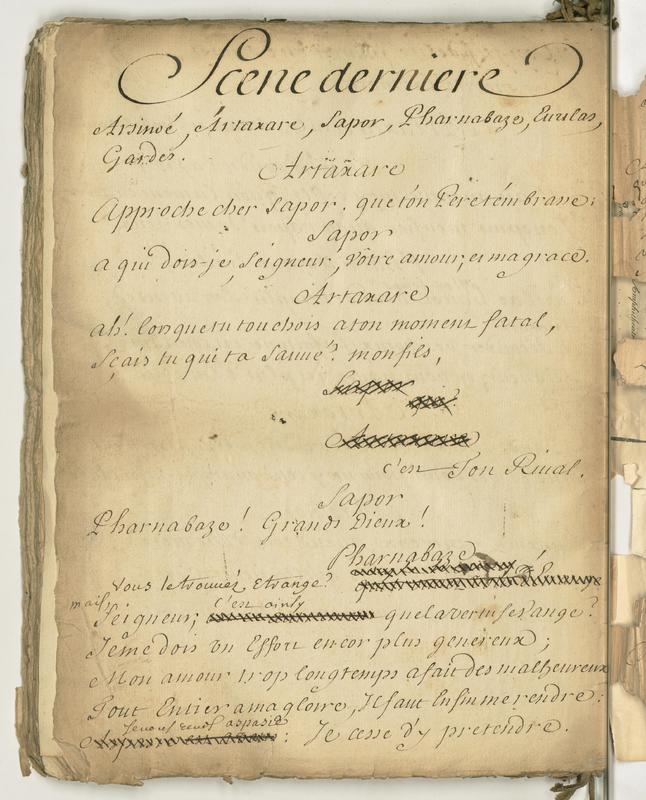 Scene derniere
Arsinoé, Artaxare, Sapor, Pharnabaze, Eurilas,
Gardes.
Artaxare
Approche cher Sapor. que ton Pere t'embrasse:
Sapor
a qui dois-je, Seigneur, vôtre amour, et ma grace.
Artaxare
ah! lorsque tu touchois a ton moment fatal,
Sçais tu qui t'a sauué? mon fils,
Sapor
qui?
Artaxare
c'est Ton Riual.
Sapor
Pharnabaze! Grands Dieux!
Pharnabaze
Vous le trouués Etrange?
mais
c'est ainsy
Seigneur; que la vertu se vange?
Je me dois un Effort encor plus genereux;
Mon amour trop longtemps a fait des malheureux
Tout Entier a ma gloire, Il faut Enfin me rendre:
Je vous rends aspasie
: Je cesse d'y pretendre.